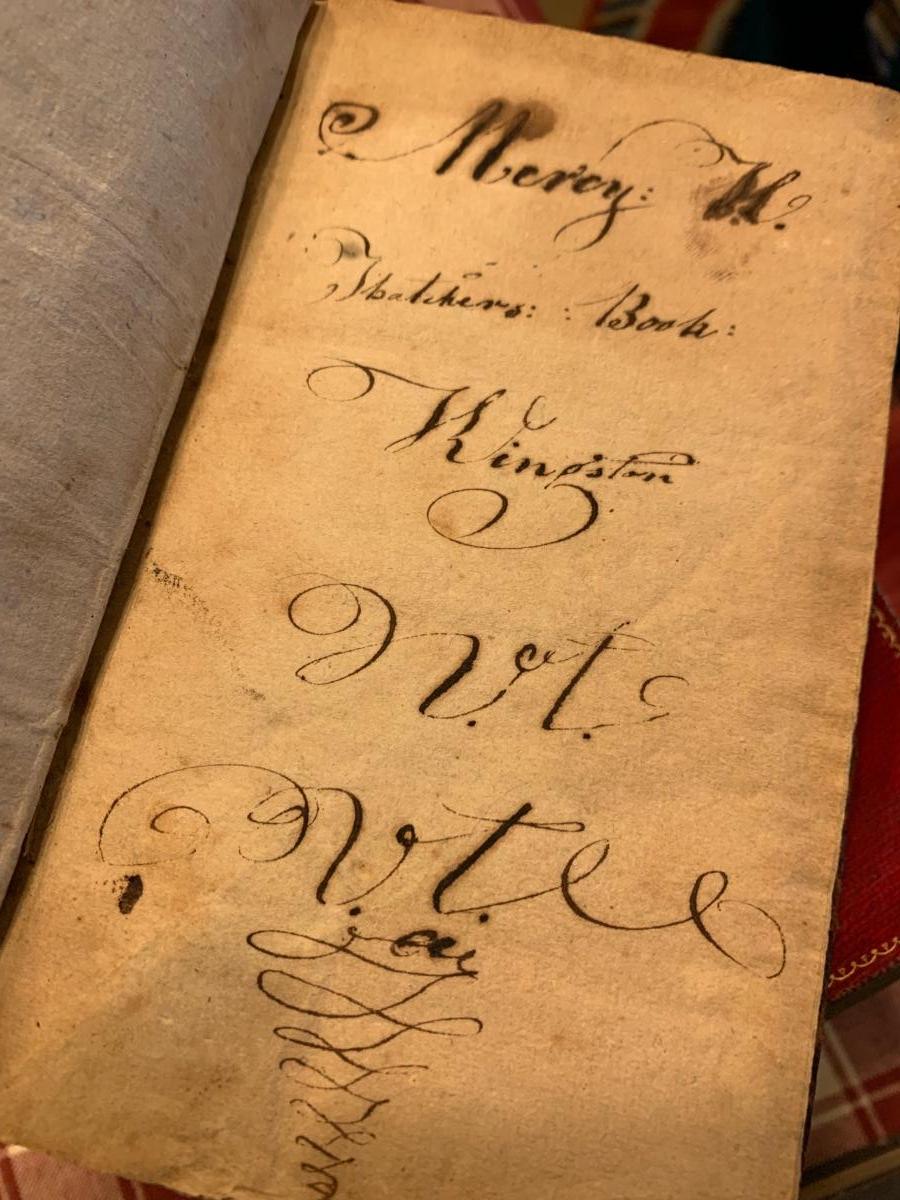 Mercy: H.
Thatchers: : Book:
Kingston
V.t.
V.t.